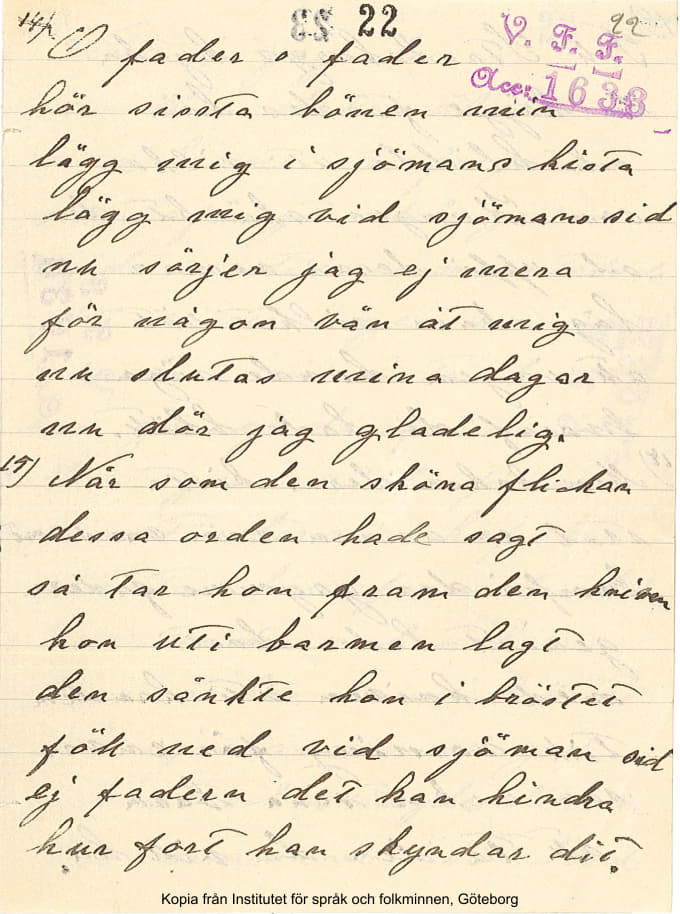 22
22
V. F. F.
Acc: 1633
14/ O fader o fader
hör sissta bönen min
lägg mig i sjömans kista
lägg mig vid sjömans sid
nu sörjer jag ej mera
för någon vän åt mig
nu slutas mina dagar
nu dör jag gladelig.
15) När som den sköna flickan
dessa orden hade sagt
så tar hon fram den kniven
hon uti barmen lagt
den sänkte hon i bröstet
föll ned vid sjöman sid
ej fadern det kan hindra
hur fort han skyndar dit.
Kopia från Institutet för språk och folkminnen, Göteborg